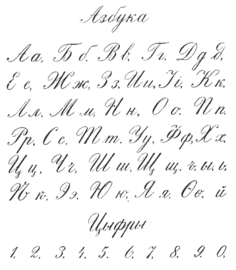 Азбука
Аа, Бб, Вв, Гг, Дд д,
Е е, Жж, Зз, Ии, Іі, Кк,
Лл, Мм, Нн, Оо, Пп,
Рр, Сс, Тт, Уу, Фф, Хх,
Цц, Чч, Шш, Щщ, ъ, ы, ь,
Ѣѣ, Ээ, Юю, Яя, Ѳѳ, й
Цыфры
1. 2. 3. 4. 5. 6. 7. 8. 9. 0.